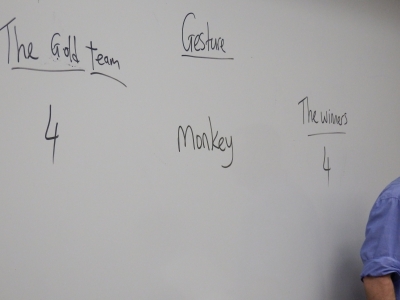 The Gold team
4
Gesture
Monkey
The winners
4